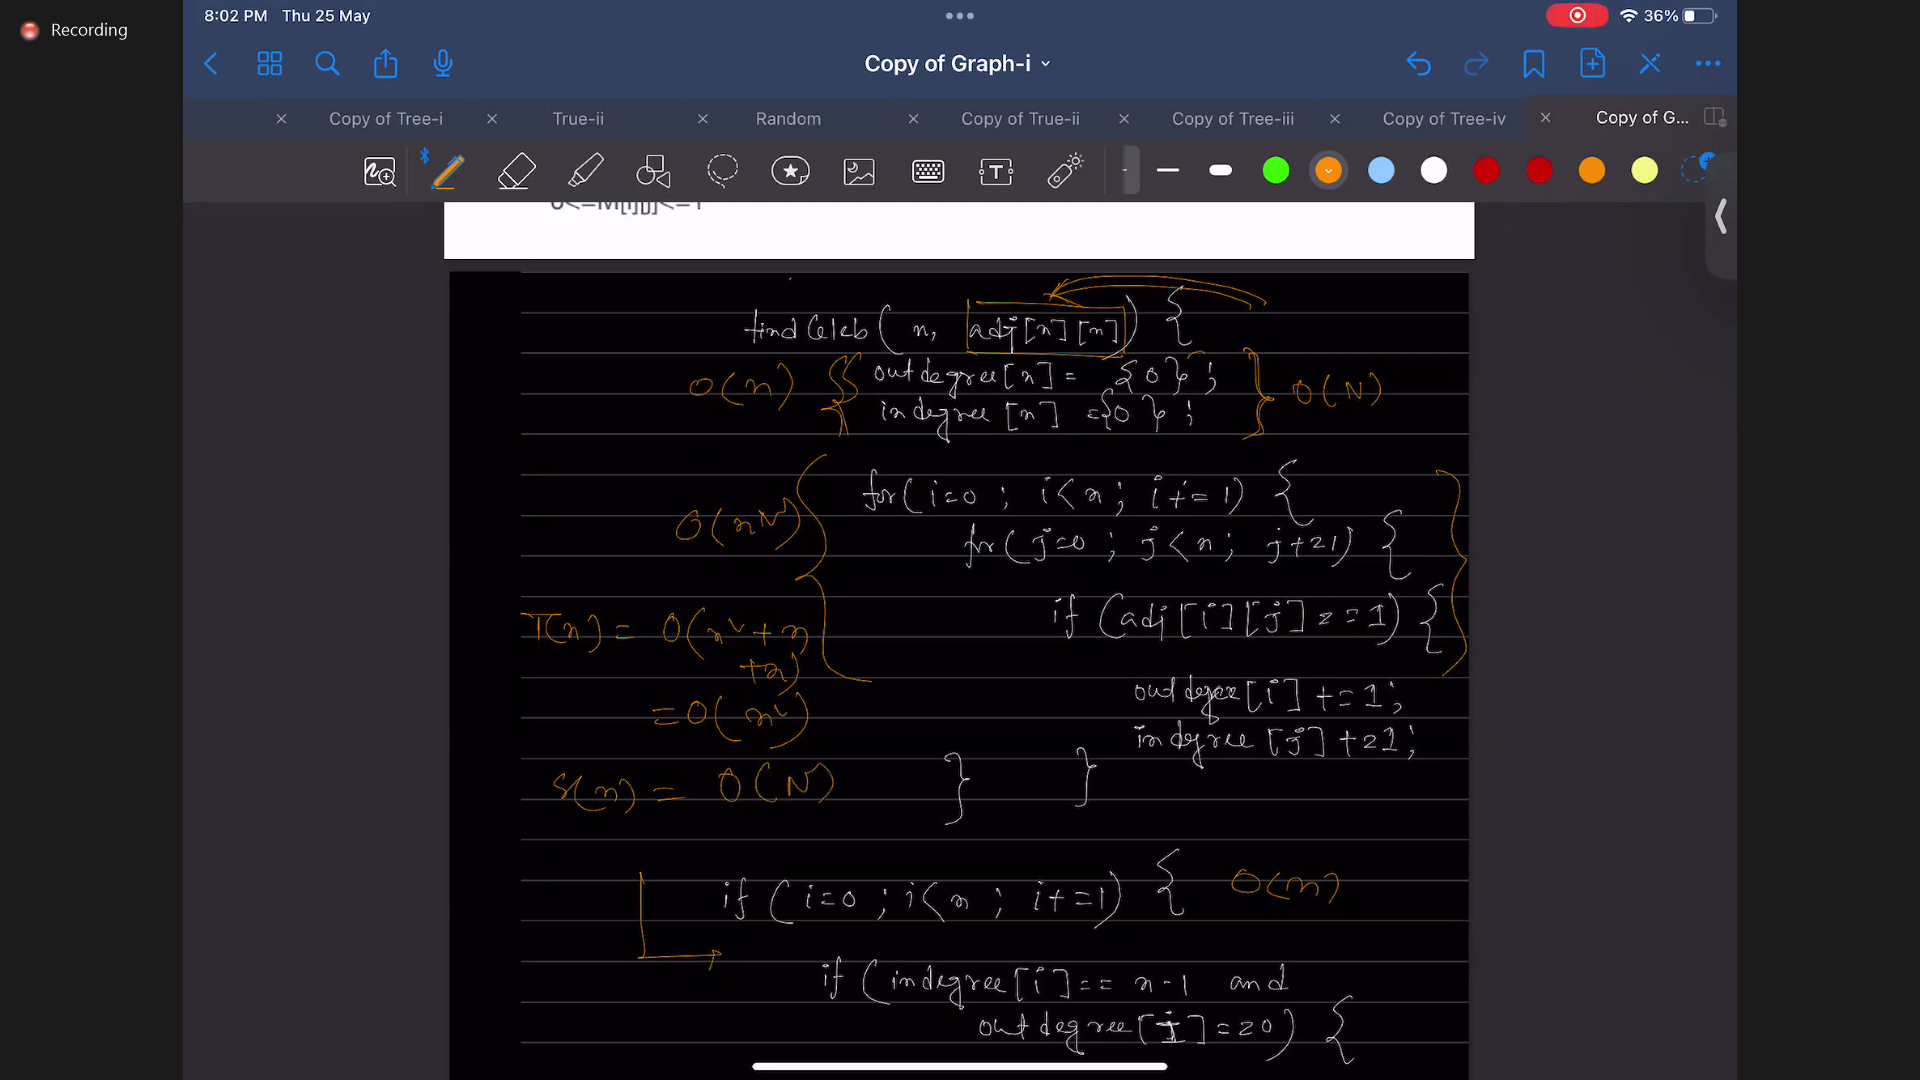 Recording
8:02 PM Thu 25 May
36%
Copy of Graph-i
Copy of Tree-i
True-ii
Random
Copy of True-ii
Copy of Tree-iii
Copy of Tree-iv
Copy of G...
T
0<=M[i][j]<=1
find Celeb ( n, adj[n][n] ) {
O(n) { outdegree[n] = {0} ; } O(N)
indegree [n] = {0} ;
for ( i=0 ; i<n ; i+=1) {
O(n²)
for ( j=0 ; j<n ; j+=1) {
if (adj[i][j] == 1) {
T(n) = O(n² + n
+n)
outdegree[i] += 1;
= O(n²)
indegree [j] +=1;
S(n) = O(N) } }
if ( i=0 ; i<n ; i+=1) { O(n)
if (indegree[i] == n-1 and
outdegree[i] ==0) {